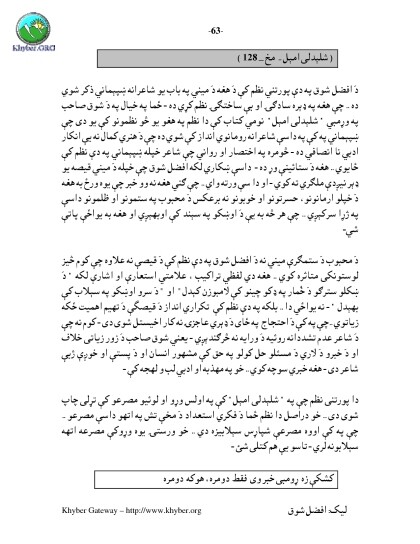 Khyber.ORG
-63-
( شلېدلی امېل۔ مخ _ 128 )
دَ افضل شوق په دې پورتني نظم کې دَ هغه دَ مينې په باب يو شاعرانه نښېښماني ذکر شوی
ده - چې هغه په ډېره سادګۍ او بې ساختګۍ نظم کړې ده - ځما په خيال په دَ شوق صاحب
په وړمبي " شلېدلی امېل " نومي کتاب کې دا نظم په هغو يو څو نظمونو کې يو دی چې
په کې په داسې شاعرانه رومانوي انداز کې شوې ده چې دَ هنري کمال نه يې انکار
ادبي نا انصافي ده - څومره په اختصار او روانۍ چې شاعر خپله په دې نظم کې
ځايوي .. هغه دَ ستائينې وړ ده - داسې ښکاري لکه افضل شوق چې خپله دَ مينې قيصه يو
ډېر نږدې ملګري ته کوي - او دا سې ورته وايي - چې ګنې هغه نه وو خبر چې يوه ورځ به هغه
دَ خپلو ارمانونو، حسرتونو او خوبونو نه برعکس دَ محبوب په ستمونو او ظلمونو داسې
په ژړا سرکېږي .. چې هر څه به يې دَ اوښکو په سېند کې اوبهېږي او هغه به يواځې پاتې
شي-
دَ محبوب دَ ستمګرۍ مينې نه دَ افضل شوق په دې نظم کې دَ قيصې نه علاوه چې کوم څيز
لوستونکی متاثره کوي .. هغه دې لفظي تراکيب ، علامتي استعارې او اشارې لکه " دَ
ښکلو سترګو دَ خُمار په ډکو چينو کې لامبوزن کېدل " او " دَ سرو اوښکو په سېلاب کې
بهېدل " - نه يواځې دا .. بلکه په دې نظم کې تکراري انداز دَ قيصګۍ دَ تفهيم اهميت څکه
زياتوي .. چې په کې دَ احتجاج په ځای دَ ډېرې عاجزۍ نه کار اخېستل شوی دی - کوم نه چې
دَ شاعر عدم تشدد انه روئيه دَ ورايه نه څرګندېږي - يعنې شوق صاحب دَ زور زياتۍ خلاف
او دَ خبرو دَ لارې دَ مسئلو حل کولو په حق کې مشهور انسان او دَ پستې او خوږې ژبې
شاعر دی - هغه خبرې سوچه کوي .. خو په مهذبه او ادبي لب و لهجه کې -
دا پورتنی نظم چې په " شلېدلی امېل" کې په اولس وړو او لوئيو مصرعو کې ترلی چاپ
شوی دی .. خو دراصل دا نظم ځما دَ فکري استعداد دَ مخې تش په اتهو داسې مصرعو ..
چې په کې اووه مصرعې شپاړس سېلابيزه دي .. خو ورستۍ يوه وړوکې مصرعه اتهه
سېلابونه لري - تاسو يې هم کتلی شئ -
کشکې زه ړومبی خبر وی فقط دومره، هوکه دومره
Khyber Gateway – http://www.khyber.org
ليک: افضل شوق